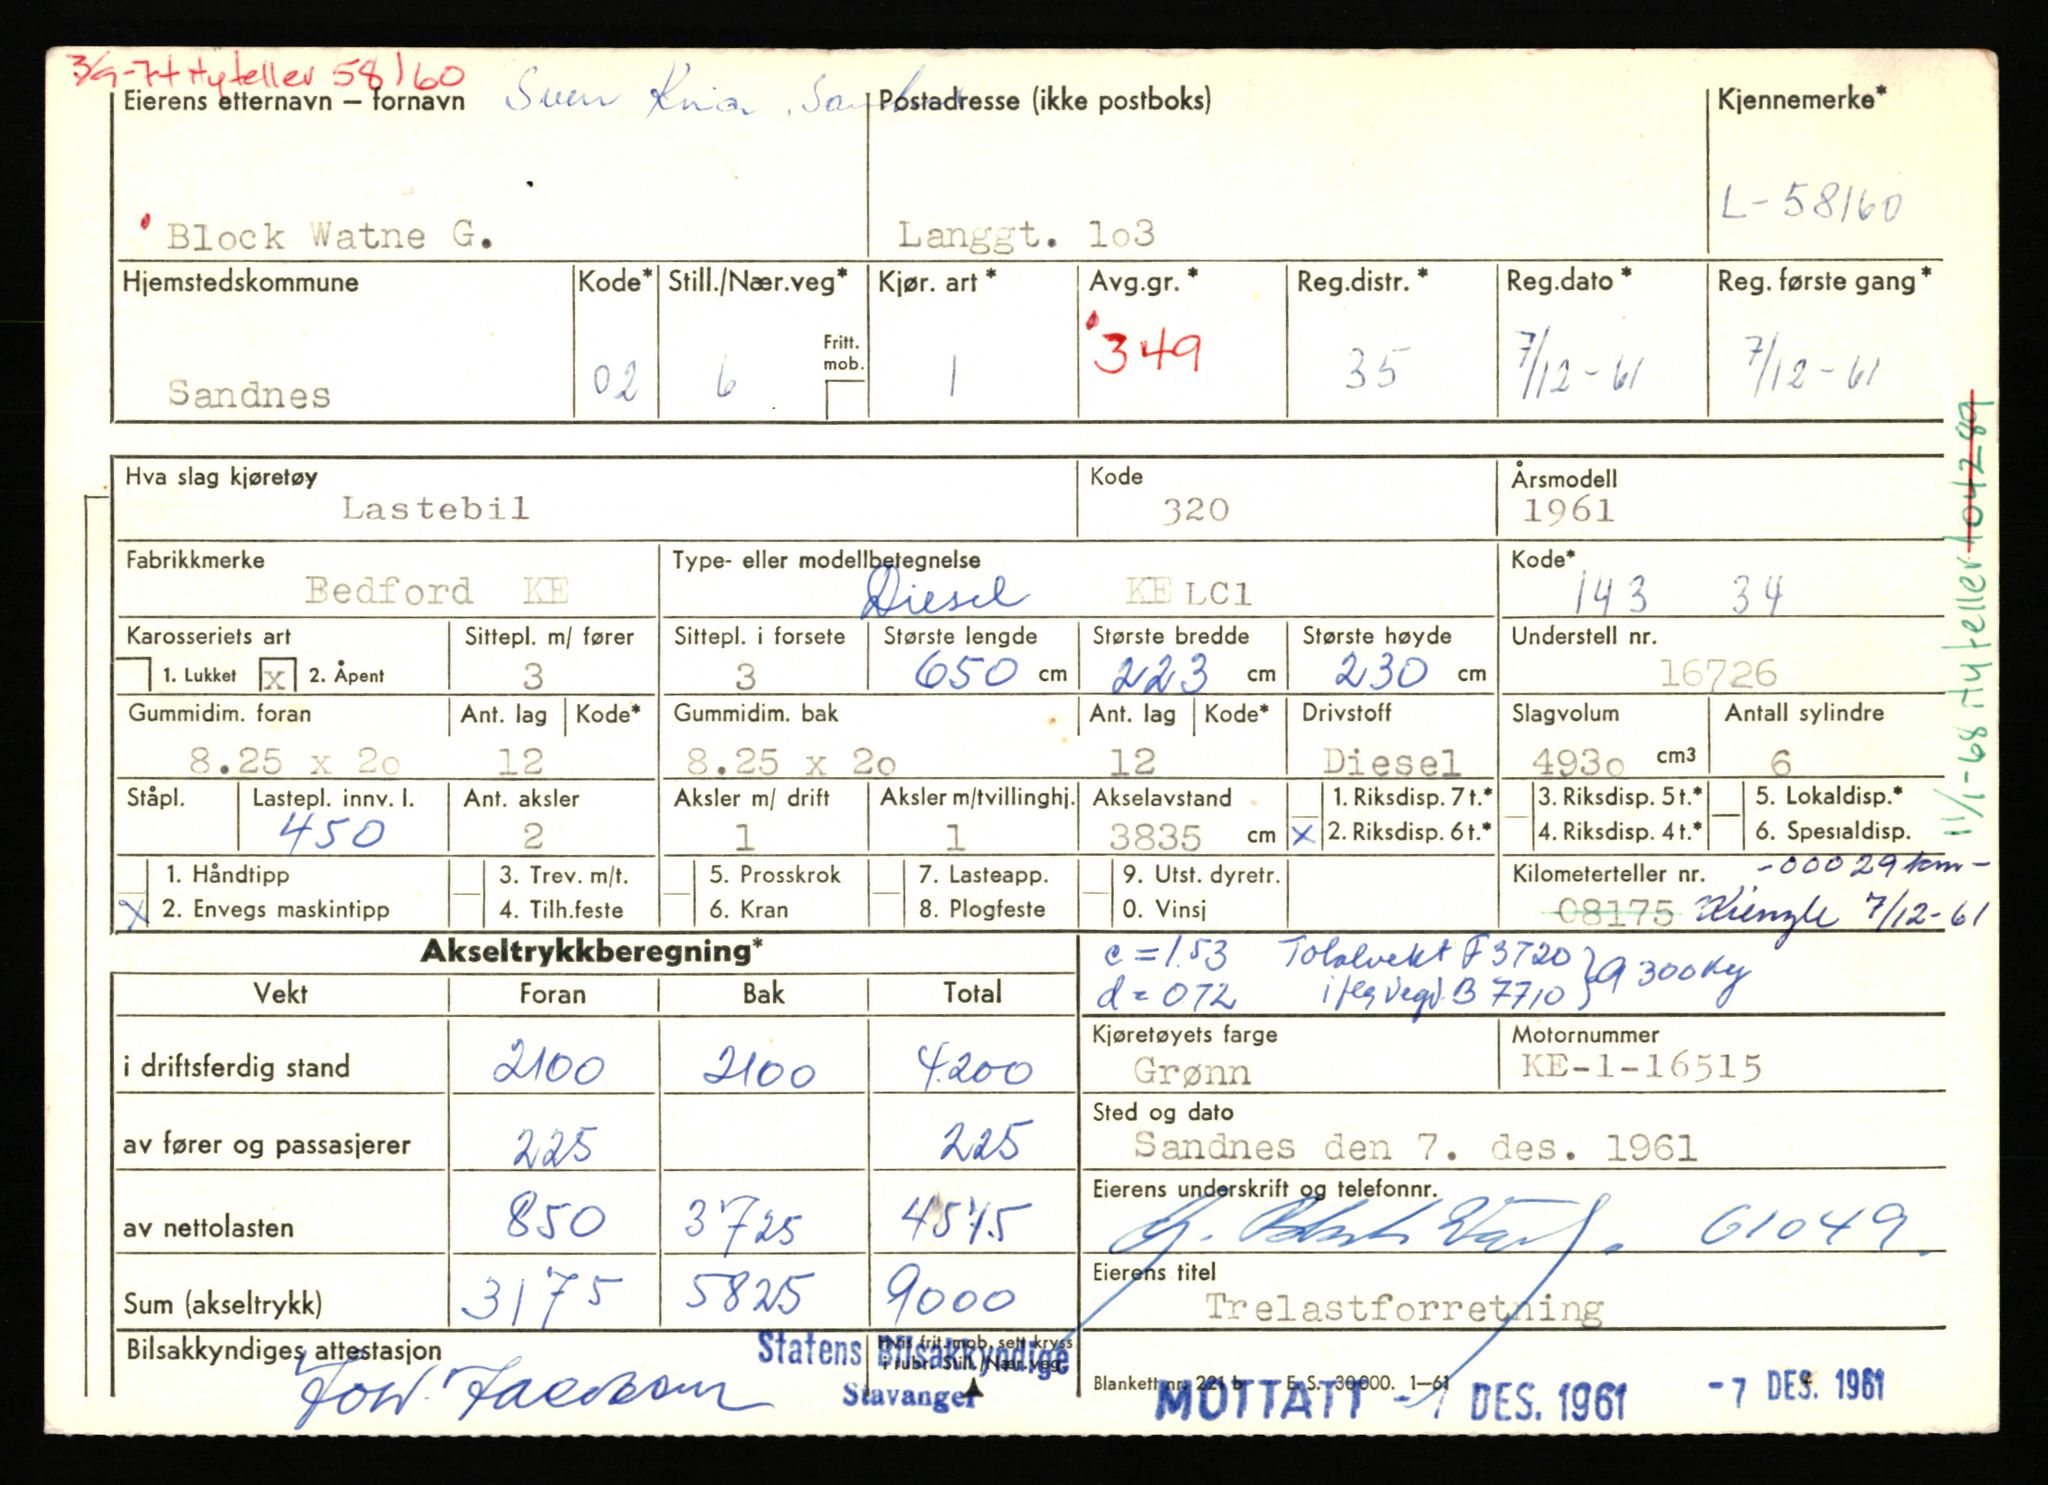 3/9-74 Ny teller 58160
Eierens etternavn – fornavn Sven Postadresse (ikke postboks) Kjennemerke*
Block Watne G. Langgt. 1o3 L-58160
Hjemstedskommune Kode* Still./Nær.veg* Kjør. art* Avg.gr.* Reg.distr.* Reg.dato* Reg. første gang*
Fritt. mob.
Sandnes 02 6 1 349 35 7/12-61 7/12-61
Hva slag kjøretøy Kode Årsmodell
Lastebil 320 1961
Fabrikkmerke Type- eller modellbetegnelse Kode*
Bedford KE Diesel KE LC1 143 34
Karosseriets art Sittepl. m/ fører Sittepl. i forsete Største lengde Største bredde Største høyde Understell nr.
1. Lukket x 2. Åpent 3 3 650 cm 223 cm 230 cm 16726
Gummidim. foran Ant. lag Kode* Gummidim. bak Ant. lag Kode* Drivstoff Slagvolum Antall sylindre
8.25 x 2o 12 8.25 x 2o 12 Diesel 493o cm3 6
Ståpl. Lastepl. innv. l. Ant. aksler Aksler m/ drift Aksler m/tvillinghj. Akselavstand 1. Riksdisp. 7 t.* 3. Riksdisp. 5 t.* 5. Lokaldisp.*
450 2 1 1 3835 cm x 2. Riksdisp. 6 t.* 4. Riksdisp. 4 t.* 6. Spesialdisp.
1. Håndtipp 3. Trev. m/t. 5. Prosskrok 7. Lasteapp. 9. Utst. dyretr. Kilometerteller nr. -00029 km-
x 2. Envegs maskintipp 4. Tilh.feste 6. Kran 8. Plogfeste 0. Vinsj 08175 Kienzle 7/12-61
11/1-68 Ny teller 104289
Akseltrykkberegning* c = 1.53 Totalvekt F 3720 } 9300 kg
Vekt Foran Bak Total d = 072 B 7710
i driftsferdig stand 2100 2100 4200
Kjøretøyets farge Motornummer
Grønn KE-1-16515
av fører og passasjerer 225 225
Sted og dato
Sandnes den 7. des. 1961
av nettolasten 850 3725 4575
Eierens underskrift og telefonnr.
G. Block Watne. 61049.
Sum (akseltrykk) 3175 5825 9000
Eierens titel
Trelastforretning
Bilsakkyndiges attestasjon
Hvis frit. mob. sett kryss
i rubr. Still./Nær.veg.
Statens Bilsakkyndige
Stavanger
Blankett nr. 221 b E. S. 30000. 1–61
MOTTATT DES. 1961 -7 DES. 1961